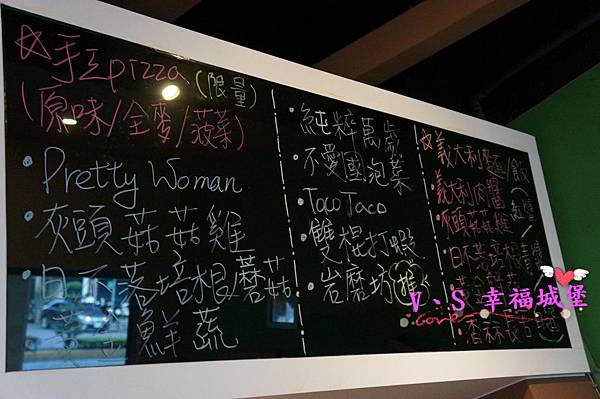 手工pizza(限量)
(原味/全麥/菠菜)
·Pretty Woman
·灰頭菇菇雞
·日不落培根/蘑菇
鮮蔬
·純粹萬歲
·不愛國泡菜
·Taco Taco
·雙棍打蝦
·岩磨坊(推)
義大利麵/飯
·義大利肉醬(紅醬)
·灰頭菇菇雞
·日不落培根
V、S 幸福城堡